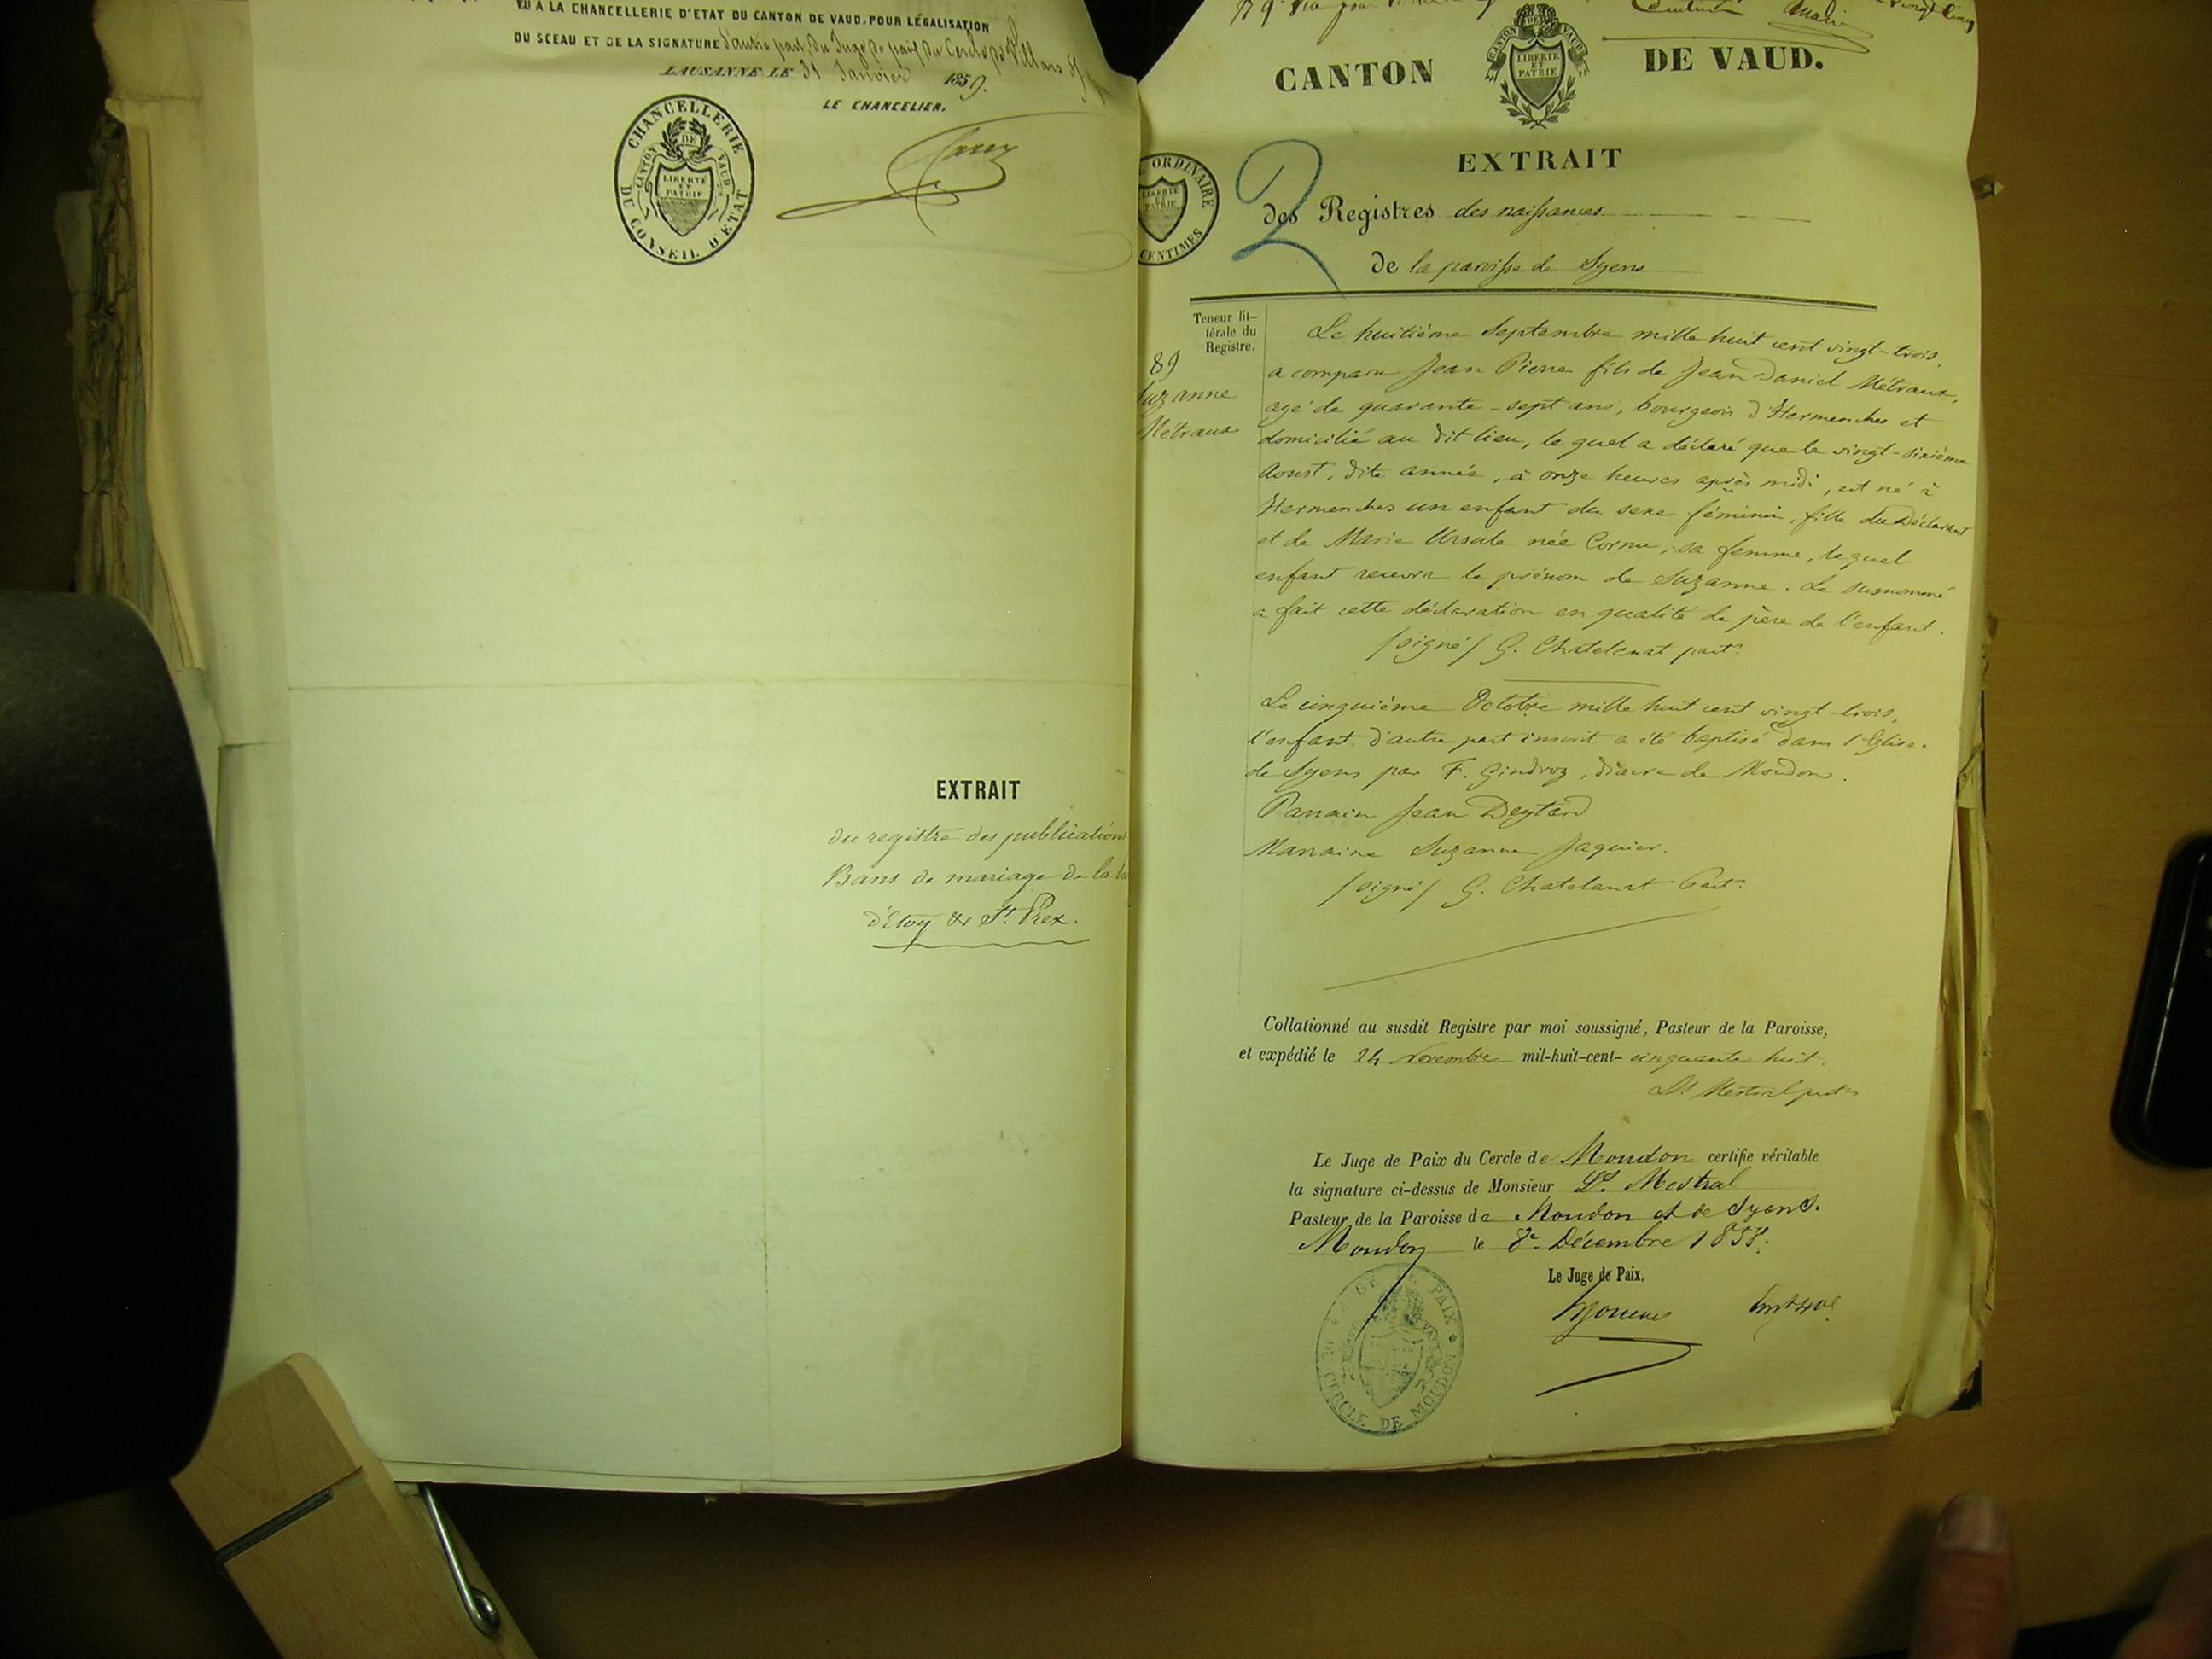 VU A LA CHANCELLERIE D'ETAT DU CANTON DE VAUD, POUR LÉGALISATION
DU SCEAU ET DE LA SIGNATURE d'autre part, du Juge de paix du Cercle de Villars
LAUSANNE LE 31 Janvier 1859.
LE CHANCELIER.
CHANCELLERIE
CANTON DE VAUD
LIBERTÉ
ET
PATRIE
DU CONSEIL D'ETAT
Carey
EXTRAIT
du registre des publications
Bans de mariage de la
d'Etoy & St. Prex.
CANTON DE VAUD.
CANTON DE VAUD
LIBERTE
ET
PATRIE
ORDINAIRE
LIBERTÉ
ET
PATRIE
CENTIMES
2
EXTRAIT
des Registres des naissances
de la paroisse de Syens
Teneur lit-
térale du
Registre.
89
Suzanne
Métraux
Le huitième Septembre mille huit cent vingt-trois,
a comparu Jean Pierre fils de Jean Daniel Métraux,
agé de quarante-sept ans, bourgeois d'Hermenches et
domicilié au dit lieu, lequel a déclaré que le vingt-sixième
Aoust, dite année, à onze heures après midi, est né à
Hermenches un enfant du sexe féminin, fille du Déclarant
et de Marie Ursule née Cornu, sa femme, lequel
enfant recevra le prénom de Suzanne. Le susnommé
a fait cette déclaration en qualité de père de l'enfant.
/signé/ G. Chatelanat past.r
Le cinquième Octobre mille huit cent vingt-trois,
l'enfant d'autre part inscrit a été baptisé dans l'Eglise
de Syens par F. Gindroz, diacre de Moudon.
Parrain Jean Deytard
Marraine Suzanne Jaquier.
/signé/ G. Chatelanat Past.r
Collationné au susdit Registre par moi soussigné, Pasteur de la Paroisse,
et expédié le 24 Novembre mil-huit-cent- cinquante huit.
Ls Mestral past.r
Le Juge de Paix du Cercle de Moudon certifie véritable
la signature ci-dessus de Monsieur Ls. Mestral
Pasteur de la Paroisse de Moudon et de Syens.
Moudon le 8e. Décembre 1858.
Le Juge de Paix,
JUGE DE PAIX
DU CERCLE DE MOUDON